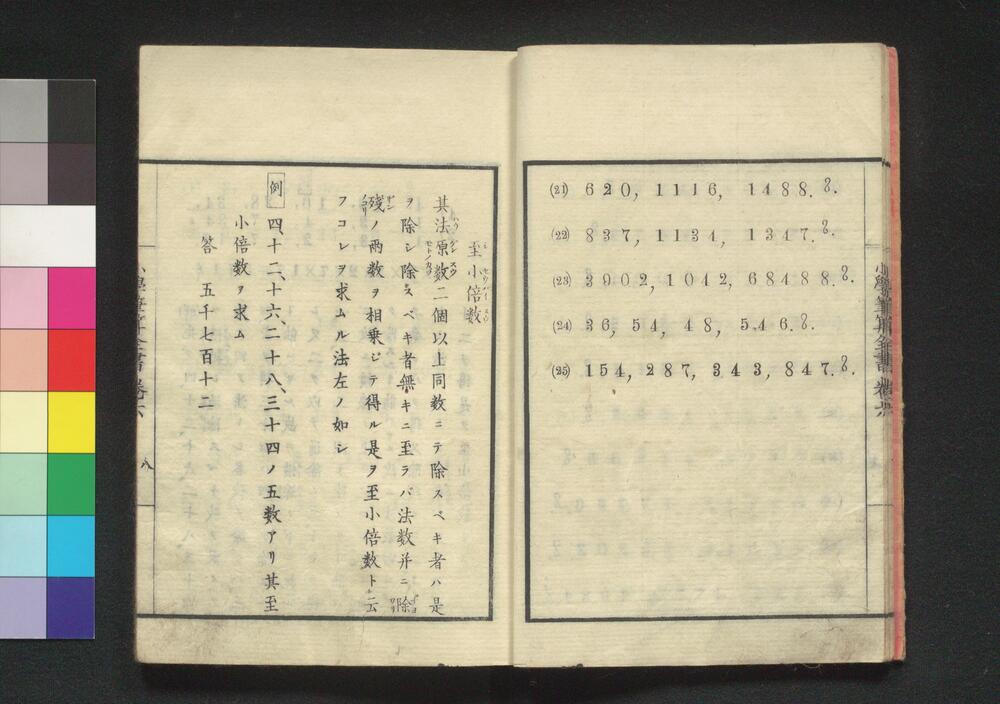 (21) 620, 1116, 1488.?.
(22) 837, 1134, 1347.?.
(23) 3902, 1042, 68488.?.
(24) 36, 54, 48, 546.?.
(25) 154, 287, 343, 847.?.
至小倍数
其法原数二個以上同数ニテ除スベキ者ハ是
ヲ除シ除スベキ者無キニ至ラバ法数并ニ除
残ノ両数ヲ相乗ジテ得ル是ヲ至小倍数ト云
フコレヲ求ムル法左ノ如シ
例 四十二、十六、二十八、三十四ノ五数アリ其至
小倍数ヲ求ム
答 五千七百十二
八